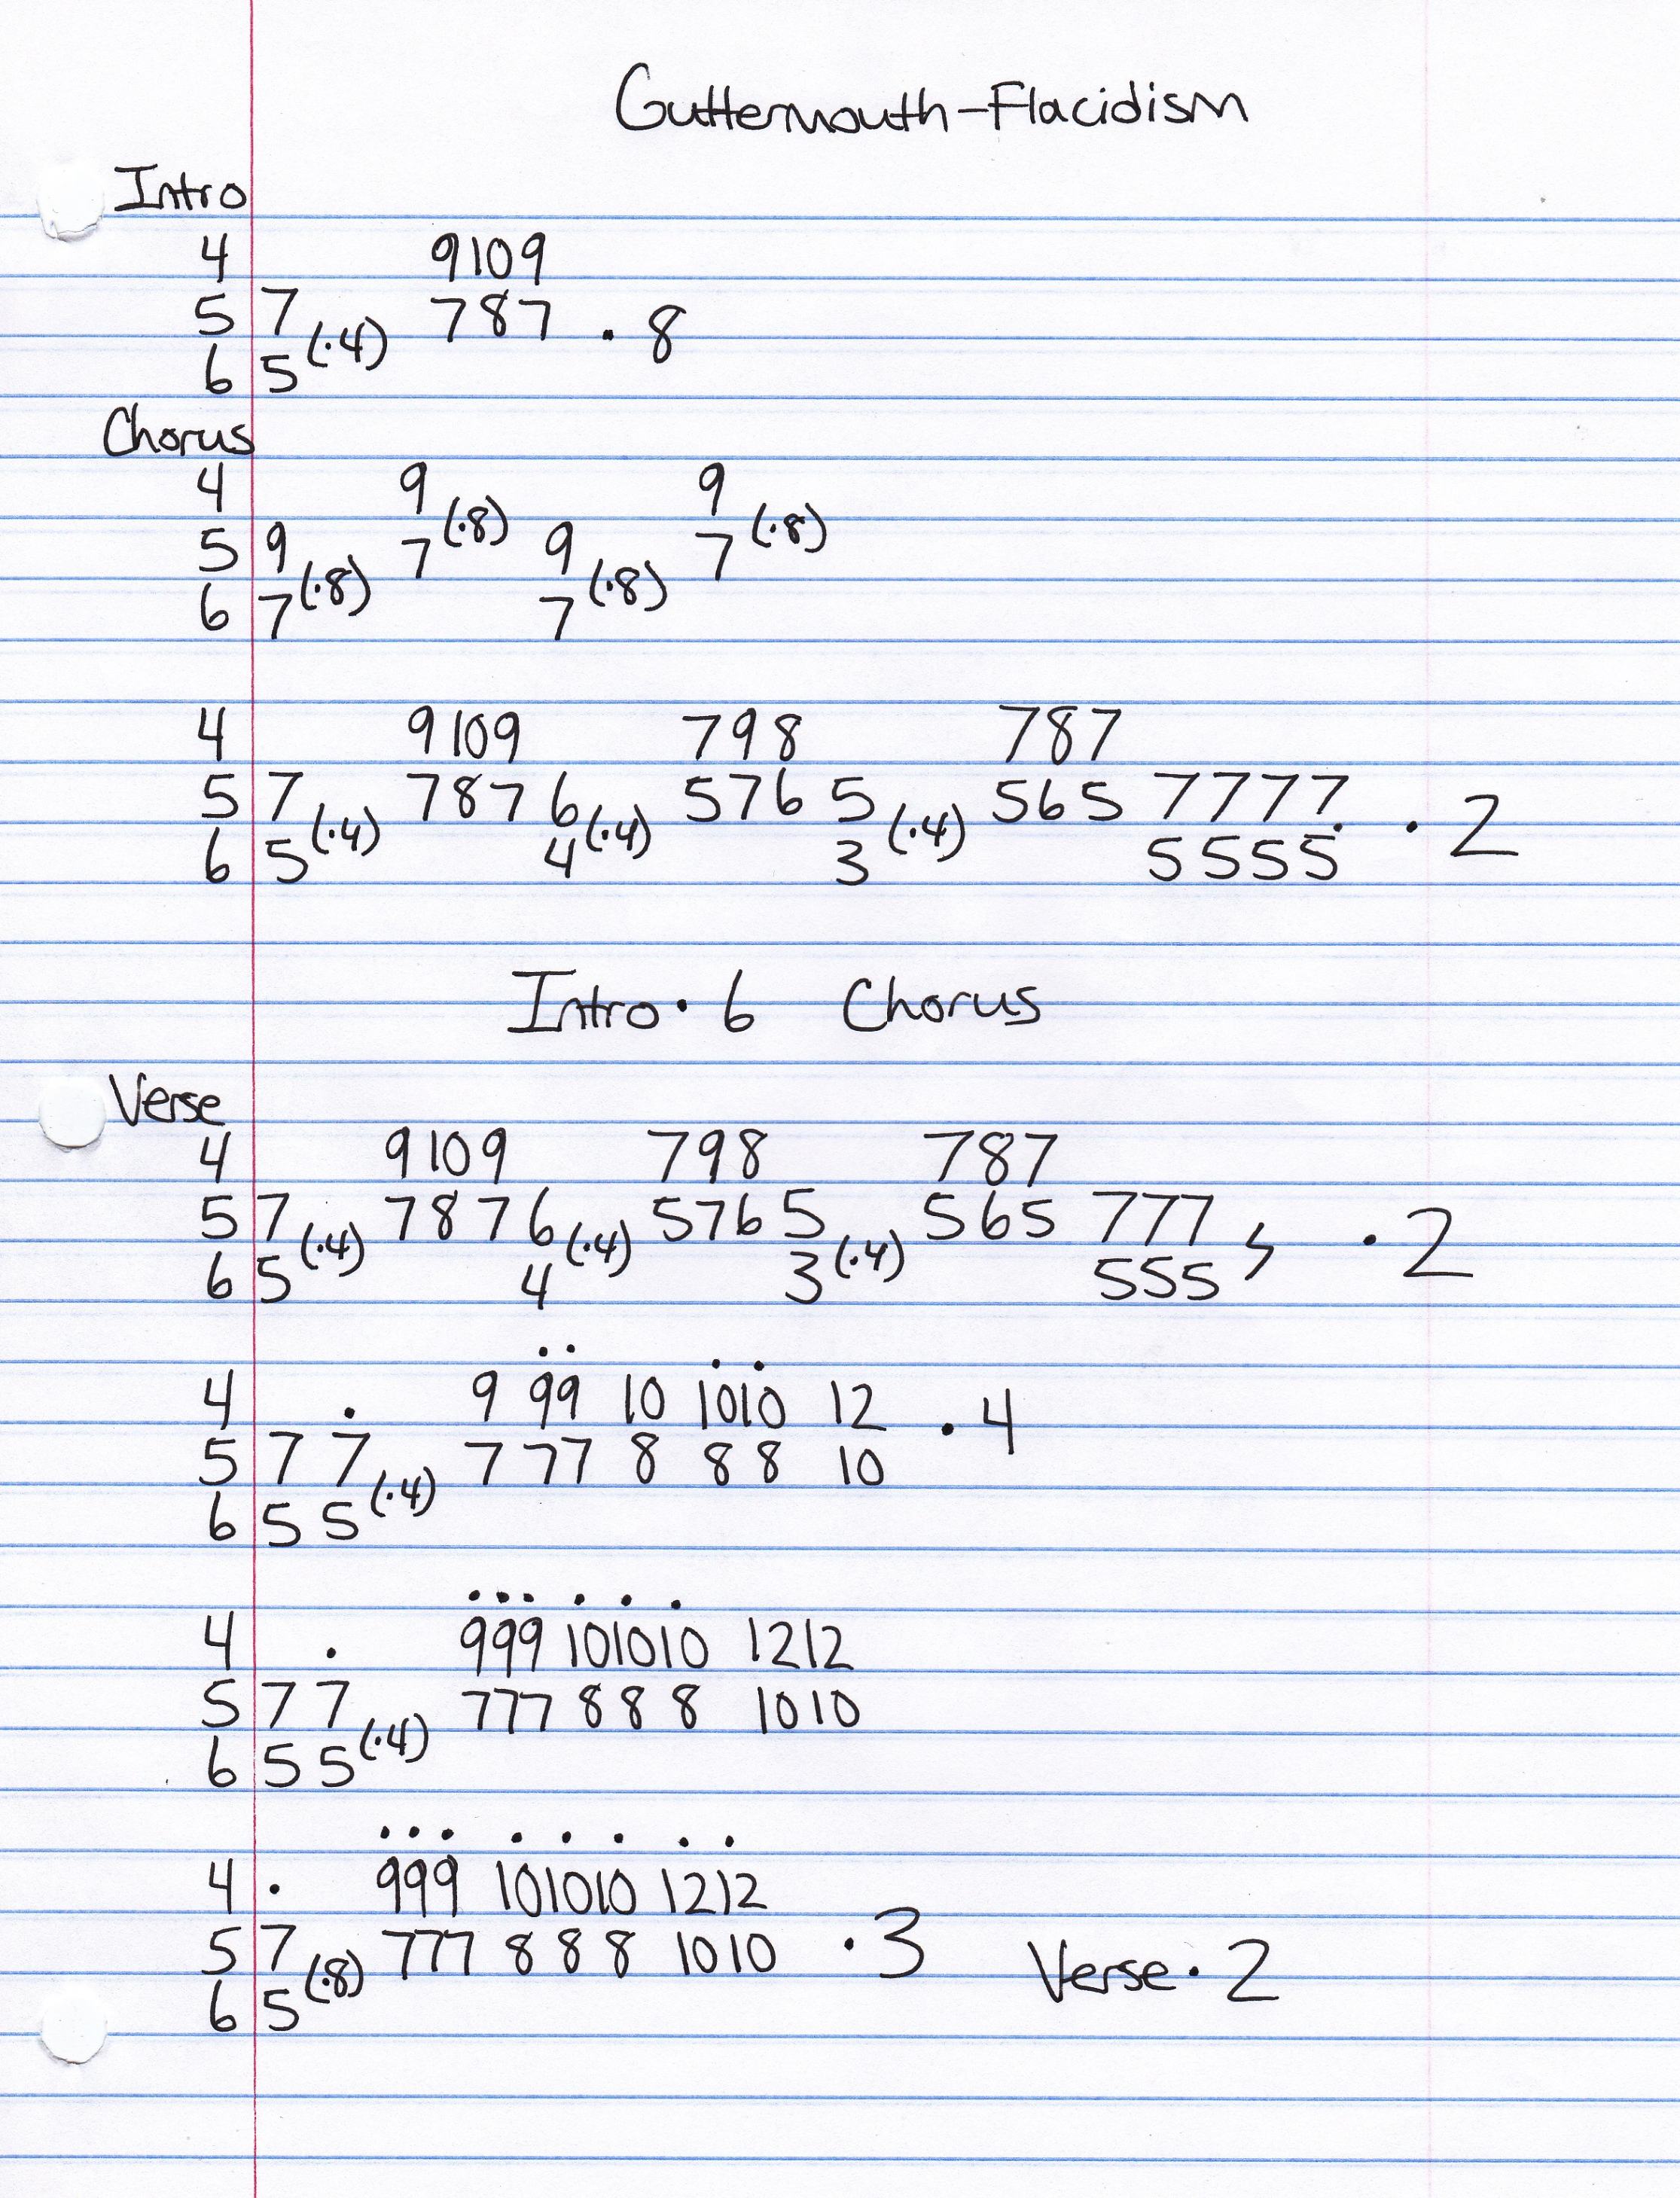 Guttermouth-Flacidism
Intro
4 9109
5 7 (·4) 787 · 8
6 5
Chorus
4 9 (·8) 9 (·8)
5 9 (·8) 7 9 (·8) 7
6 7 7
4 9109 798 787
5 7 (·4) 787 6 (·4) 576 5 (·4) 565 7777. · 2
6 5 4 3 5555
Intro · 6 Chorus
Verse
4 9109 798 787
5 7 (·4) 787 6 (·4) 576 5 (·4) 565 777 · 2
6 5 4 3 555
·· · ·
4 · 9 99 10 1010 12 · 4
5 7 7 (·4) 7 77 8 88 10
6 5 5
··· · · ·
4 · 999 101010 1212
5 7 7 (·4) 777 888 1010
6 5 5
··· · · · · ·
4 · 999 101010 1212
5 7 (·8) 777 888 1010 · 3 Verse · 2
6 5